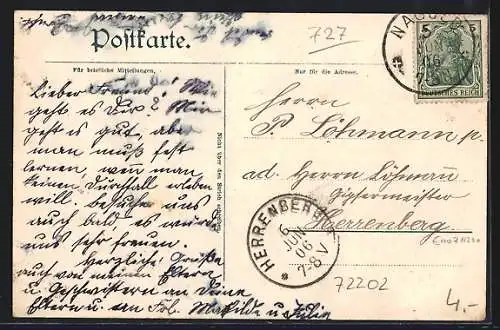 Postkarte.
727
NAGOLD
5 5
DEUTSCHES REICH
Für briefliche Mitteilungen.
Nur für die Adresse.
Lieber Freund! Wie
geht es Dir? Mir
geht es gut, aber
man muß fest
lernen, wen man
keinen Durchfall erleben
will. besuche uns
auch bald es würde
uns sehr freuen.
Herzliche Grüße
auch von meinen Eltern
u. Geschwistern an Deine
Eltern u. an Frl. Mathilde u. Julie
Nicht über den Strich schreiben
Herrn
P. Löhmann
ad. Herrn Löhmann
Gipsermeister
Herrenberg.
HERRENBERG
6
JUN
06
7-8 V
72202
4.-